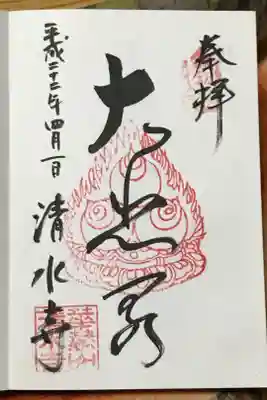 奉拝
大悲閣
平成二十二年四月一日 清水寺